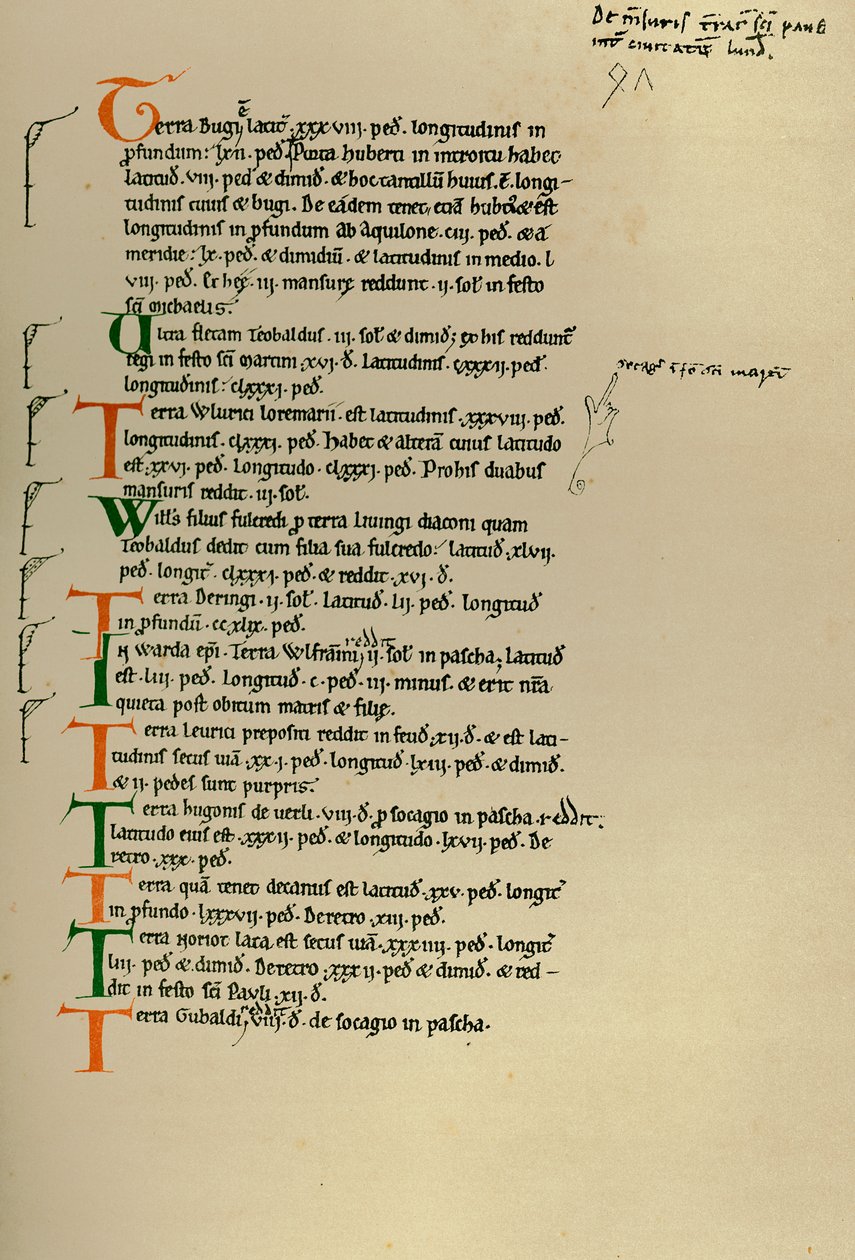 De m̄suris t̄rar̄ sc̄i pauli
ciuitatis lund̄.
Terra Bugi ē latit̄. xxxviii. ped̄. longitudinis in
ꝓfundum: lxii. ped̄. Porta huberti in introitu habet
latitud̄. viii. ped̄ & dimid̄. & hoc tantillū huius. ē. longi-
tudinis cuius & bugi. De eadem tenet, etiā hub̄t & est
longitudinis in ꝓfundum ab Aquilone. ciii. ped̄. & a
meridie: lx. ped̄. & dimidiū. & latitudinis in medio. l
viii. ped̄. Et hęę. iii. mansurę reddunt. ii. sol̄ in festo
sc̄i Michaelis.
Vltra fletam Teobaldus. iii. sol̄ & dimid̄; & his reddunt̄
regi in festo sc̄i Martini. xvi. d̄. Latitudinis. cxxxii. ped̄.
longitudinis: clxxxi. ped̄.
Terra Wlurici loremarii. est latitudinis. xxxviii. ped̄.
longitudinis. clxxxi. ped̄. Habet & alterā cuius latitudo
est. xxvi. ped̄. Longitudo. clxxxi. ped̄. Pro his duabus
mansuris reddit. iii. sol̄.
Will̄s filius fulcredi ꝓ terra Liuingi diaconi quam
Teobaldus dedit cum filia sua fulcredo: latitud̄. xlvii.
ped̄. longit̄. clxxxi. ped̄. & reddit. xvi. d̄.
Terra Deringi. ii. sol̄. Latitud̄. lii. ped̄. Longitud̄
in ꝓfundū. ccxlix. ped̄.
In Warda ep̄i. Terra Wlfrāmi reddit ii. sol̄ in pascha; Latitud̄
est. liii. ped̄. Longitud̄. c. ped̄. iii. minus. & erit nr̄a
quieta post obitum matris & filię.
Terra Leurici prepositi reddit in feud̄. xii. d̄. & est lati-
tudinis secus uiā. xx. i. ped̄. longitud̄. lxiii. ped̄. & dimid̄.
& ii. pedes sunt purpris.
Terra hugonis de uerli. viii. d̄. ꝓ socagio in pascha. reddit.
Latitudo eius est. xxxii. ped̄. & longitudo. lxvii. ped̄. De
retro. xxx. ped̄.
Terra quā tenet decanus est latitud̄. xxv. ped̄. longit̄
in ꝓfundo. lxxxvii. ped̄. De retro. xiii. ped̄.
Terra Noriot lata est secus uiā. xxxiiii. ped̄. longit̄
liii. ped̄ & dimid̄. De retro. xxxii. ped̄ & dimid̄. & red-
dit in festo sc̄i Pauli. xii. d̄.
Terra Gubaldi, reddit viii. d̄. de socagio in pascha.